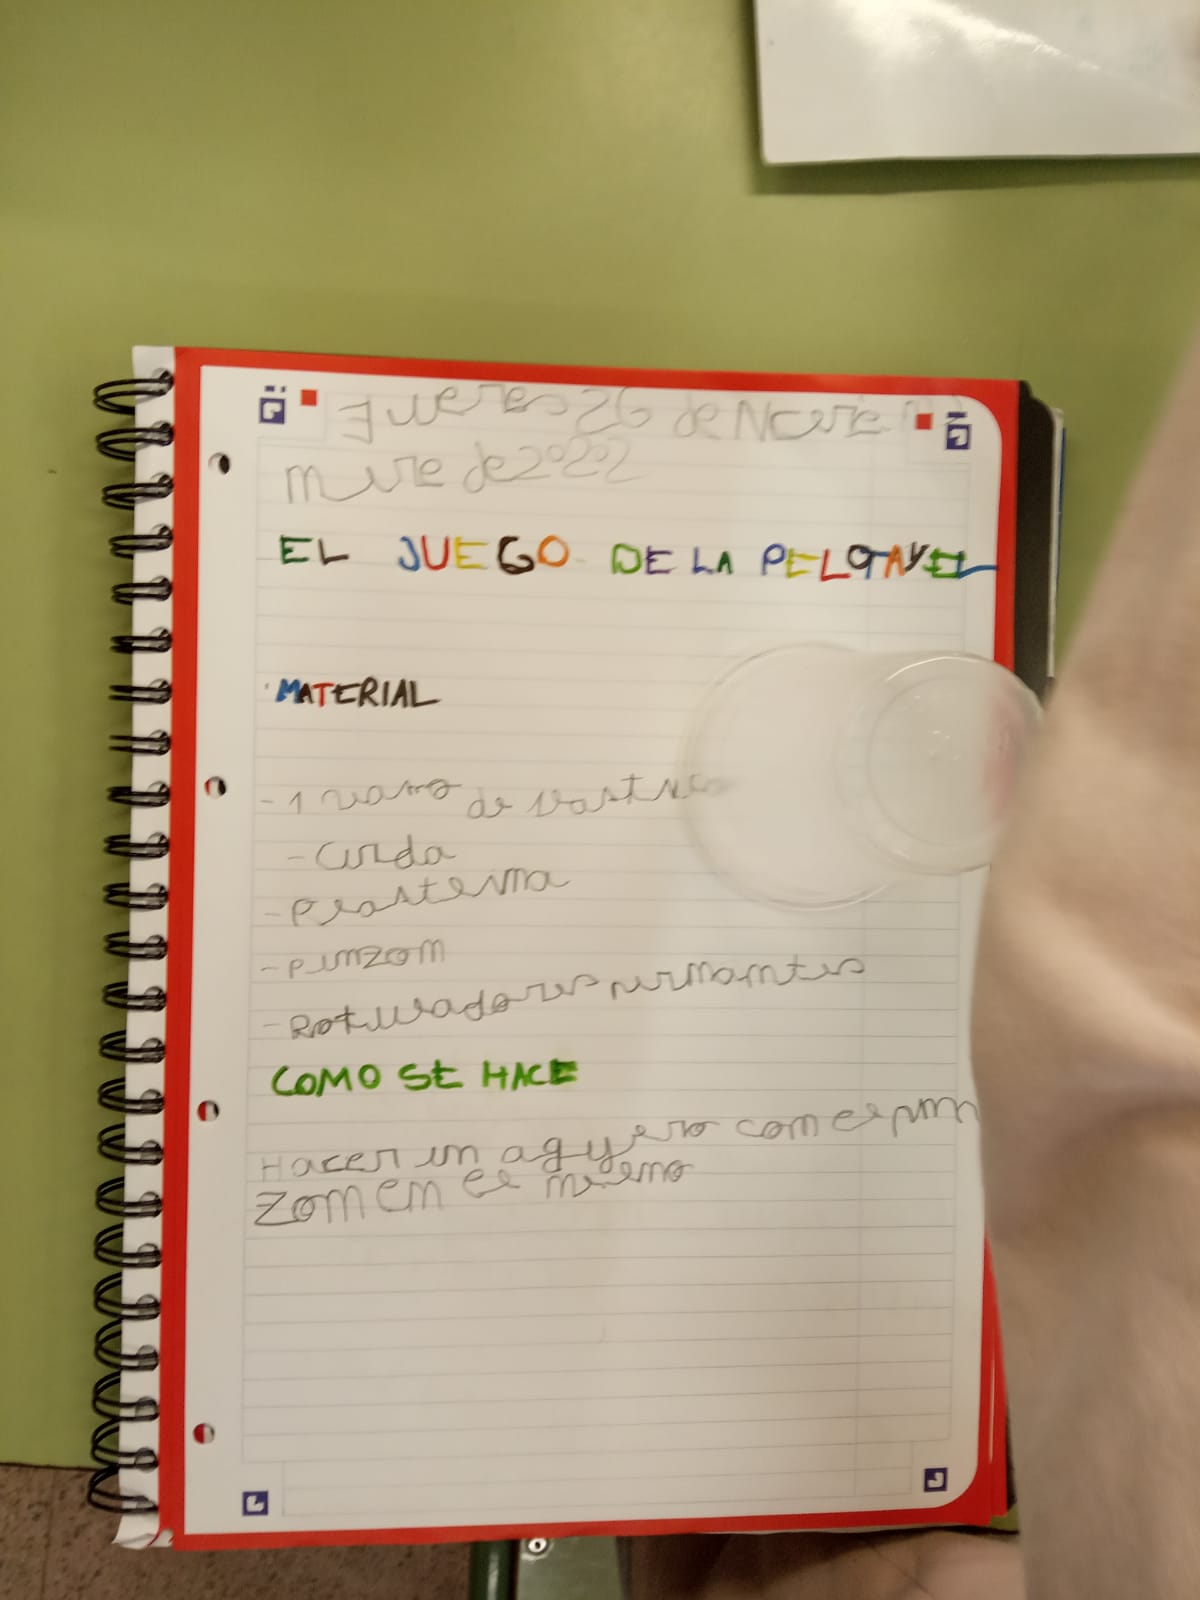 Jueves 26 de Novie
mbre de 2022
EL JUEGO DE LA PELOTA Y EL
MATERIAL
- 1 vaso de
- Curda
- Plasteina
- punzom
- Rotuladores permamtes
COMO SE HACE
Hacer un agyero com el pun
zom en el